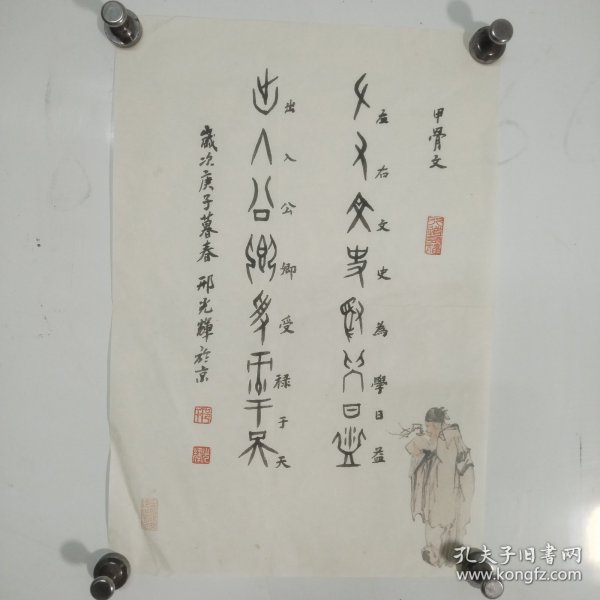 甲骨文
左右文史為學日益
出入公卿受祿于天
歲次庚子暮春 邢光輝於京
孔夫子旧书网
www.kongfz.com